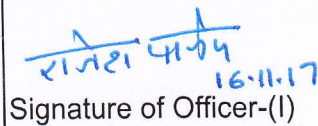 राजेश पाण्डेय
16.11.17
Signature of Officer-(I)